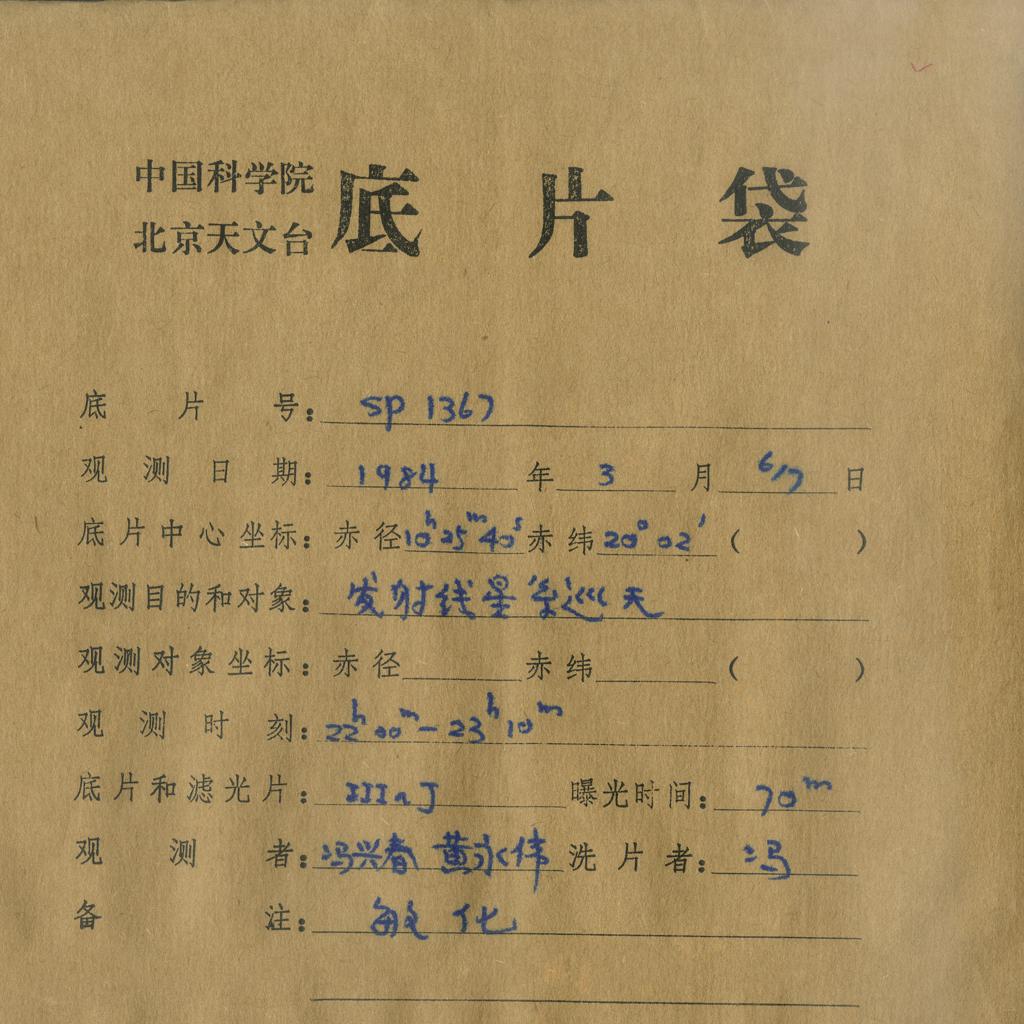 中国科学院
北京天文台 底片袋
底片号: sp 1367
观测日期: 1984 年 3 月 6/7 日
底片中心坐标: 赤径 10h25m40s 赤纬 20°02′ ( )
观测目的和对象: 发射线星系巡天
观测对象坐标: 赤径 赤纬 ( )
观测时刻: 22h00m-23h10m
底片和滤光片: IIIaJ 曝光时间: 70m
观测者: 冯兴春 黄永伟 洗片者: 冯
备注: 敏化